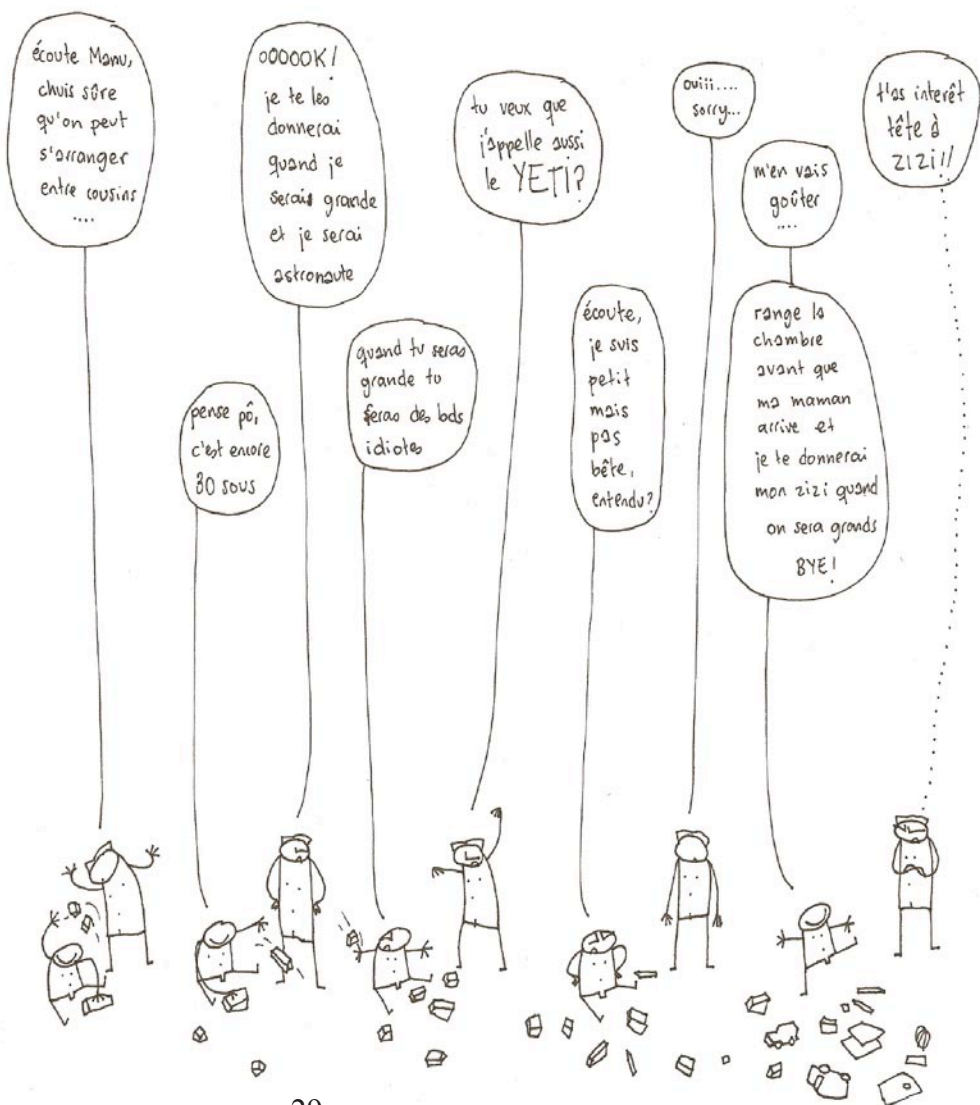 écoute Manu,
chuis sûre
qu'on peut
s'arranger
entre cousins
....
pense pô,
c'est encore
30 sous
OOOOOK!
je te les
donnerai
quand je
serais grande
et je serai
astronaute
quand tu seras
grande tu
feras des bads
idiotes
tu veux que
j'appelle aussi
le YETI?
écoute,
je suis
petit
mais
pas
bête,
entendu?
ouiii....
sorry...
m'en vais
goûter
....
range la
chambre
avant que
ma maman
arrive et
je te donnerai
mon zizi quand
on sera grands
BYE!
t'as interêt
tête à
zizi!!
29